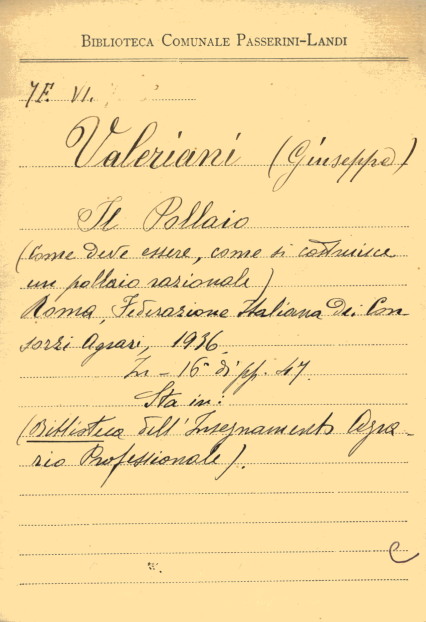 BIBLIOTECA COMUNALE PASSERINI-LANDI
7F. VI.
Valeriani (Giuseppe)
Il Pollaio
(Come deve essere, come si costruisce
un pollaio razionale)
Roma, Federazione Italiana dei Con-
sorzi Agrari, 1936
In - 16° di pp. 47.
Sta in:
(Biblioteca dell'Insegnamento Agra-
rio Professionale).